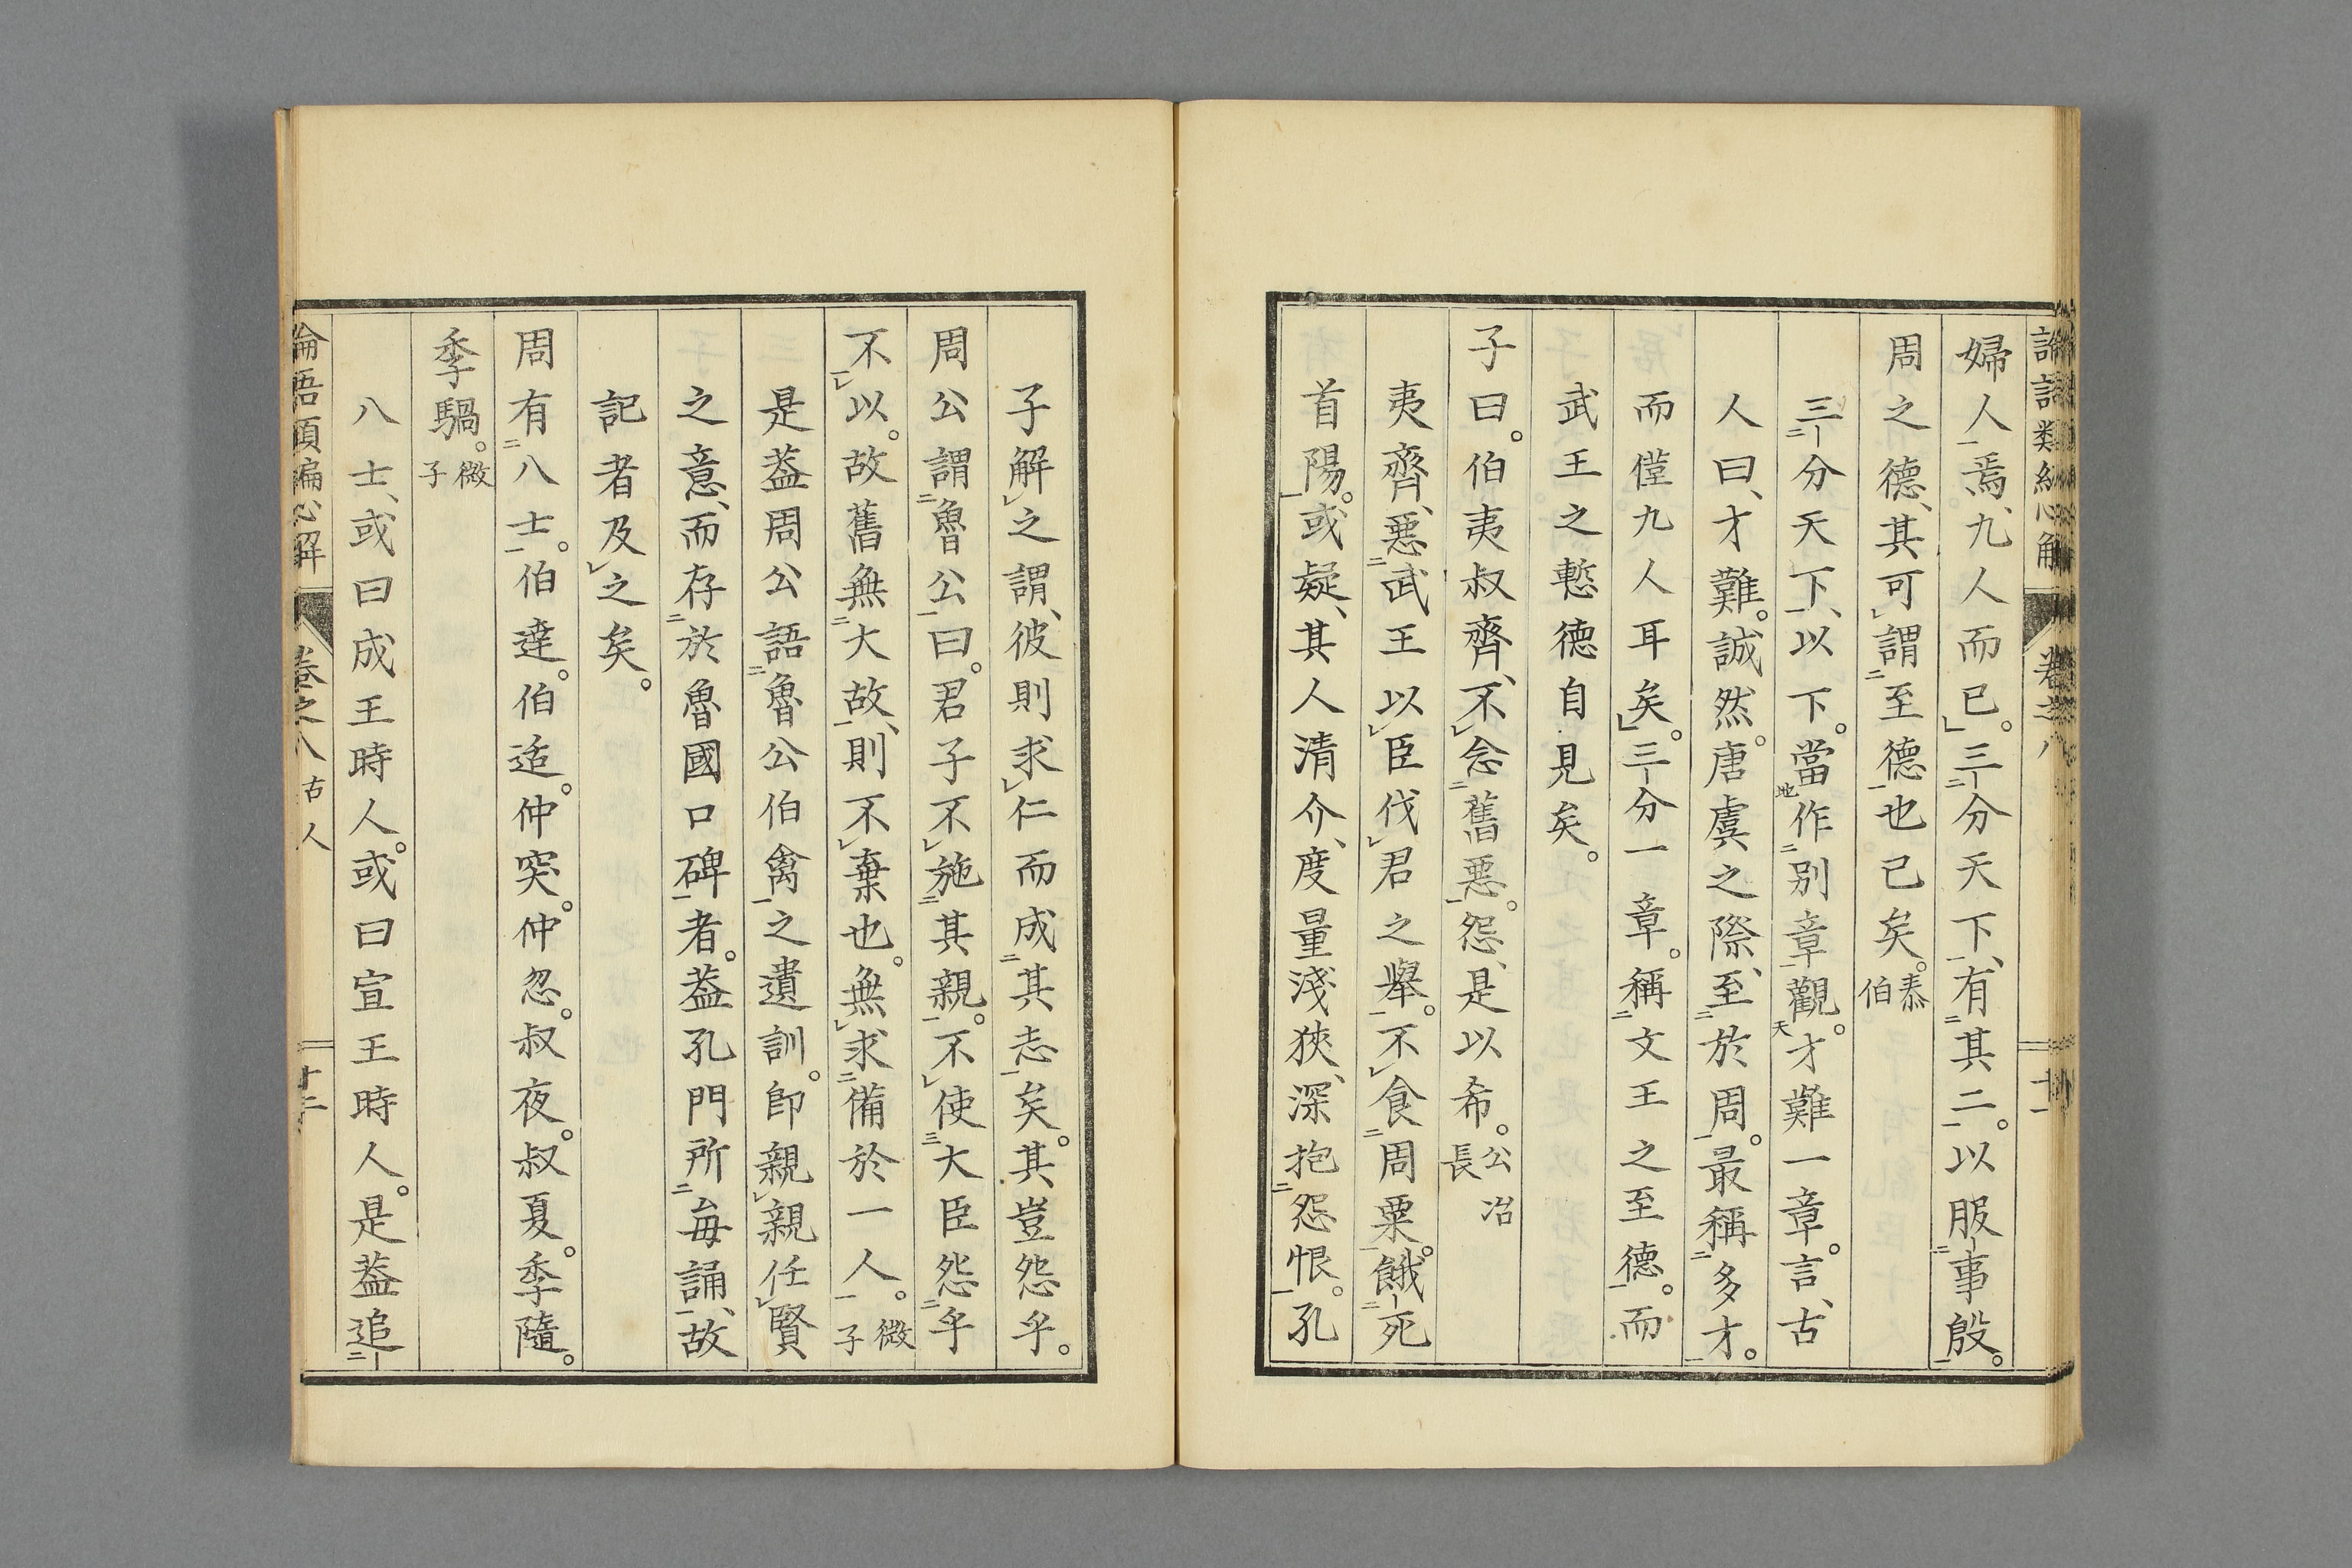 婦人焉、九人而已。三分天下、有其二。以服事殷。
周之德、其可謂至德也已矣。泰伯
三分天下、以下。當作別章觀。才難一章。言、古
人曰、才難。誠然。唐虞之際、至於周。最稱多才。
而僅九人耳矣。三分一章。稱文王之至德。而
武王之慙德自見矣。
子曰。伯夷叔齊、不念舊惡。怨、是以希。公冶長
夷齊、惡武王以臣伐君之擧。不食周粟。餓死
首陽。或疑、其人清介、度量淺狹、深抱怨恨。孔
子解之謂、彼則求仁而成其志矣。其豈怨乎。
周公謂魯公曰。君子不施其親。不使大臣怨乎
不以。故舊無大故、則不棄也。無求備於一人。微子
是葢周公語魯公伯禽之遺訓。卽親親任賢
之意、而存於魯國口碑者。葢孔門所每誦、故
記者及之矣。
周有八士。伯達。伯适。仲突。仲忽。叔夜。叔夏。季隨。
季騧。微子
八士、或曰成王時人。或曰宣王時人。是葢追
卷之八 古人 十二